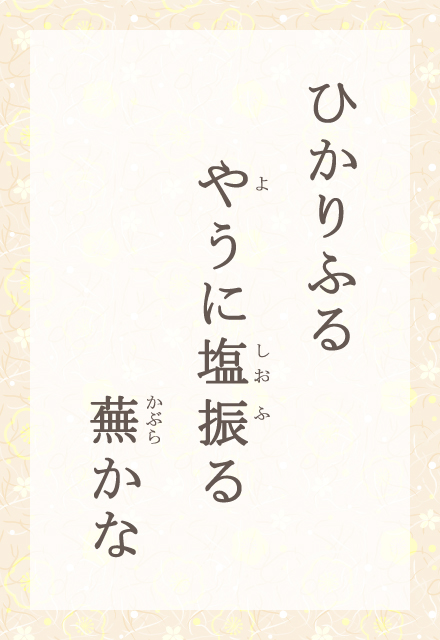 ひかりふる
やうに塩振る
よ
しお
ふ
蕪かな
かぶら